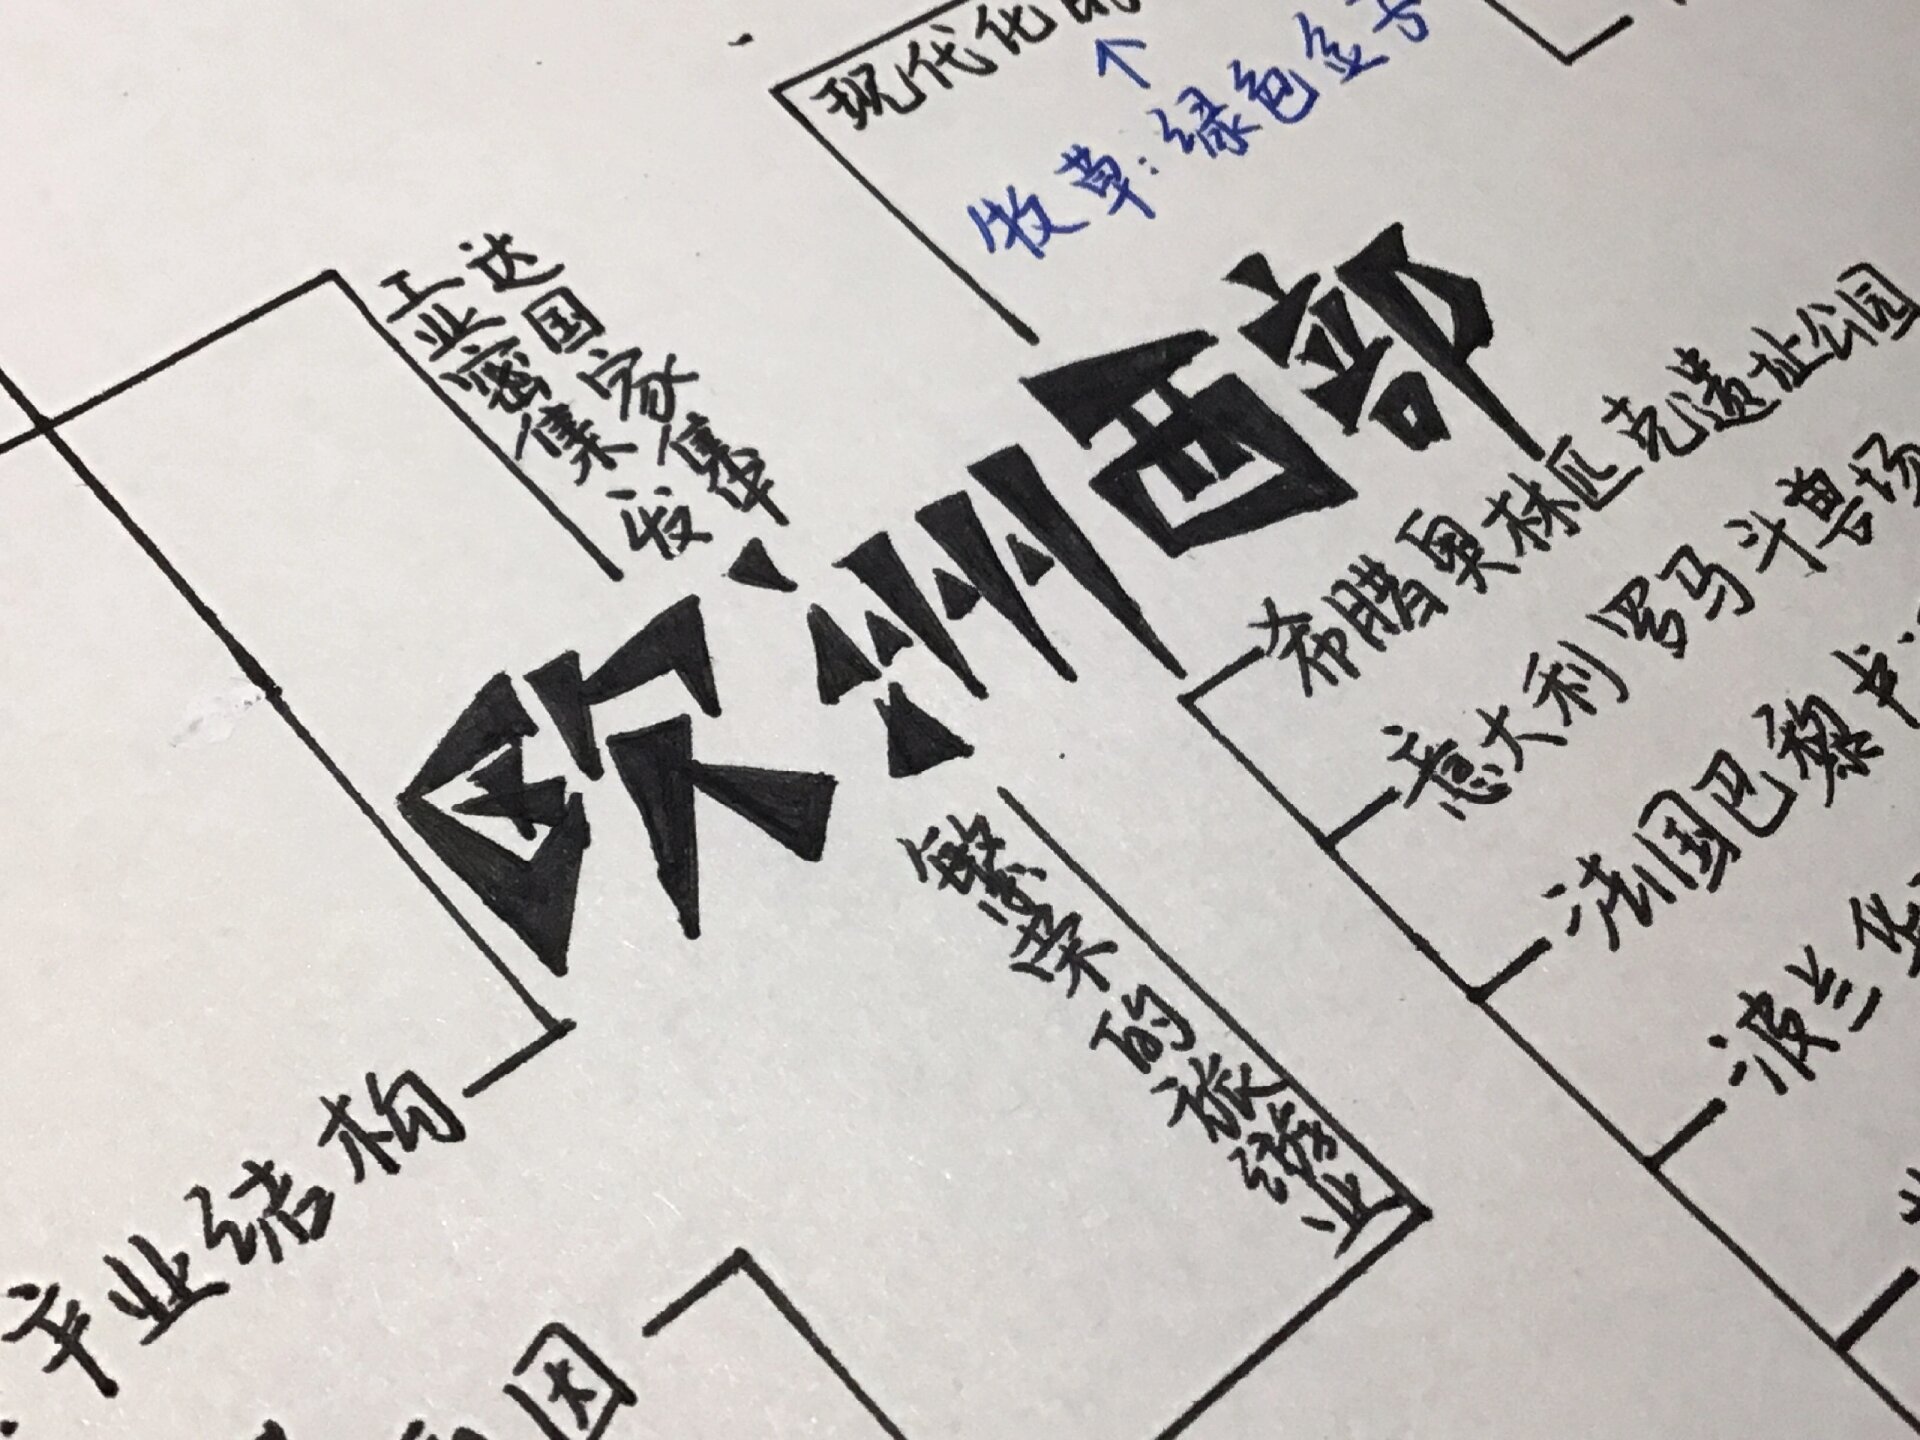 现代化的
牧草:绿色金子
工业密集
发达国家集中
欧洲西部
希腊奥林匹克遗址公园
意大利罗马斗兽场
法国巴黎
波兰华
繁荣的旅游业
产业结构
因